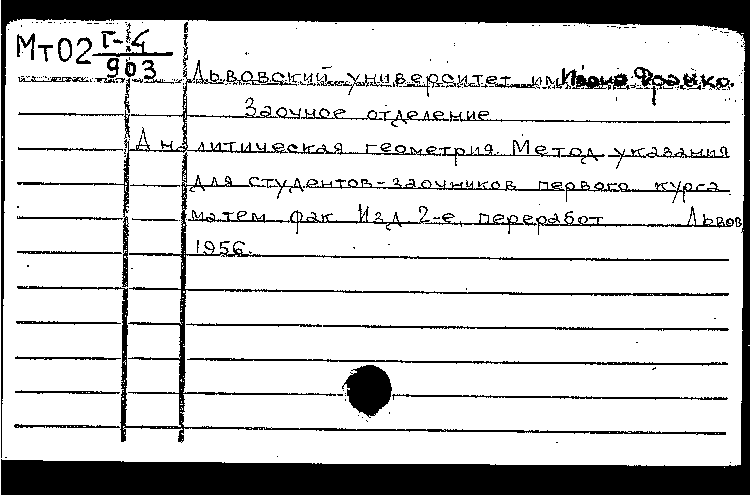 МтО2 Г-4
903
Львовский университет им. Ивана Франко.
Заочное отделение
Аналитическая геометрия. Метод. указания
для студентов-заочников первого курса
матем. фак. Изд. 2-е, переработ. Львов
1956.